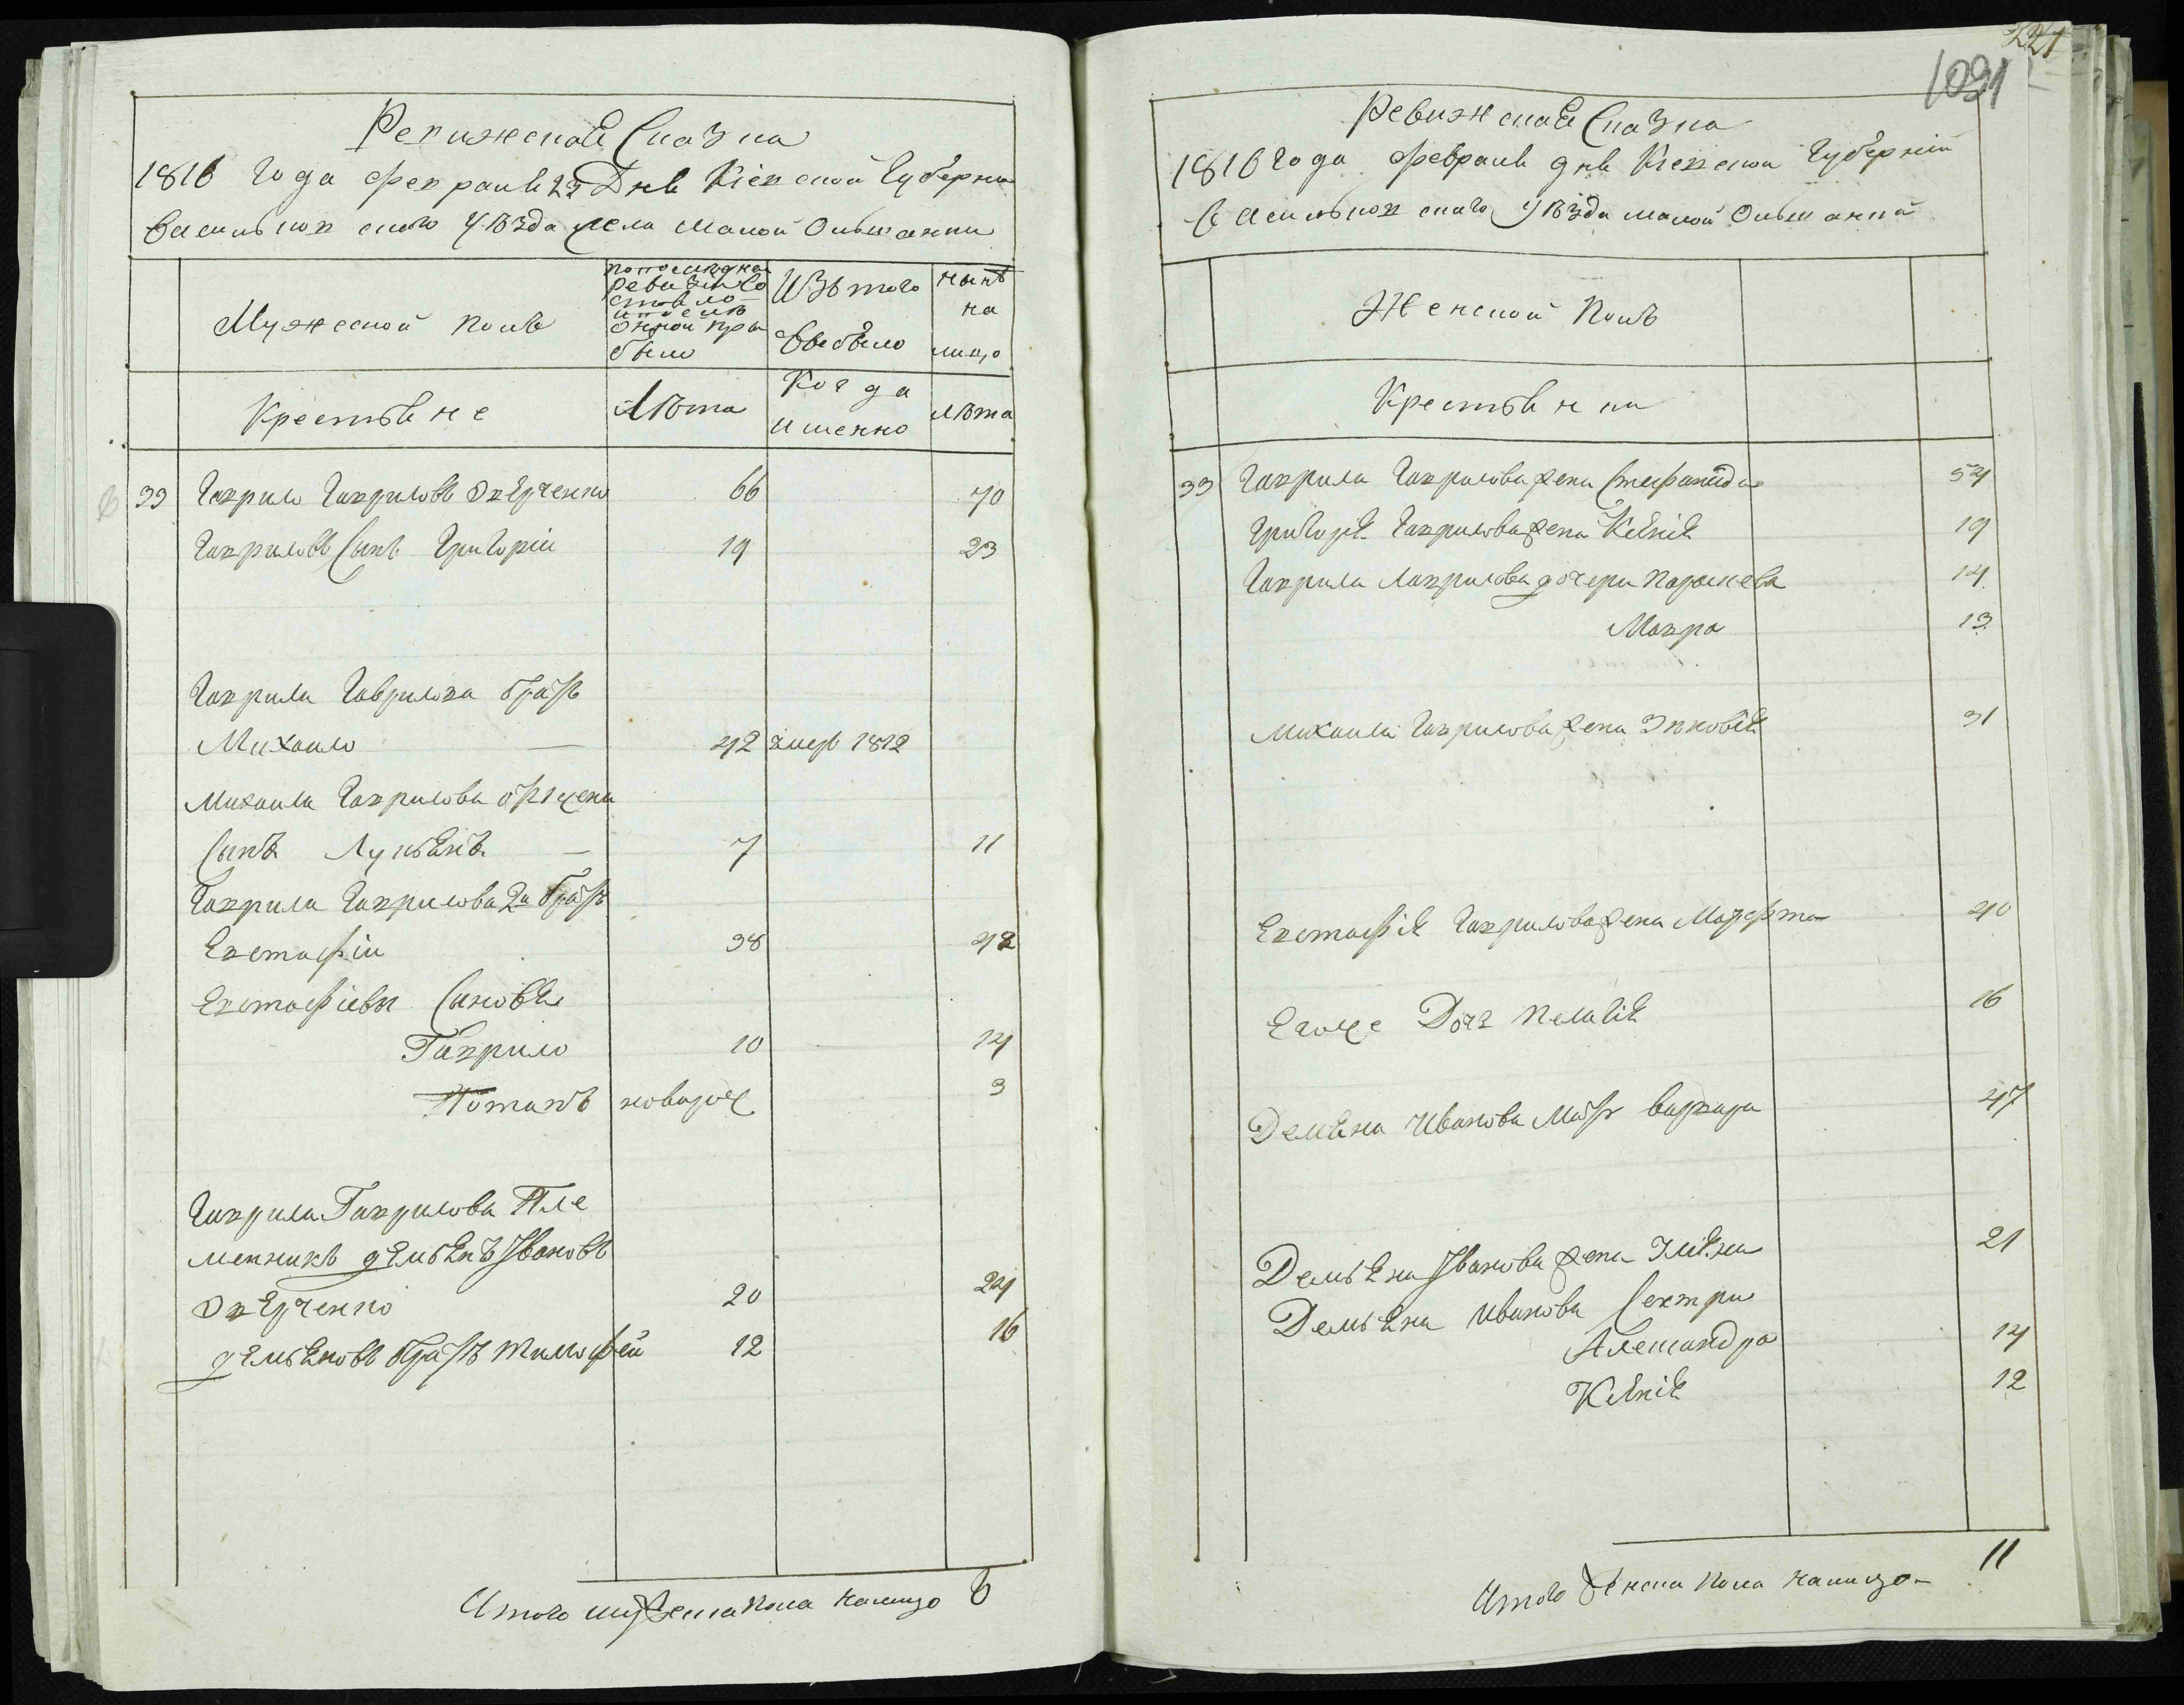 Ревижская Сказка
1816 года Февраля 23 Дня Кіевской Губерни
Васильковского Уѣзда села Малой Ольшанки
Мужеской полъ
по последней
ревизіи со
стояло
и после
оной при
было
Изъ того
выбыло
нынѣ
на
лицо
Крестьяне
Лѣта
Когда
именно
лѣта
33 Гаврило Гавриловъ Окярченко 66 70
Гавриловъ Сынъ Григорій 19 23
Гаврила Гаврилова братъ
Михайло — 42 умеръ 1812
Михаила Гаврилова
Сынъ Лукьянъ — 7 11
Гаврила Гаврилова 2й братъ
Евстафій 38 42
Евстафіевы Сыновья
Гаврило 10 14
Потапъ новорож 3
Гаврила Гаврилова Пле
менникъ Демьянъ Ивановъ
Окярченко 20 24
Демьяновъ братъ Тимофей 12 16
Итого мужеска пола налицо 8
221
1091
Ревижская Сказка
1816 года Февраля дня Кіевской Губерніи
Васильковского Уѣзда Малой Ольшанкѣ
Женской Полъ
Крестьянки
33 Гаврила Гаврилова жена Стефанида 54
Григорія Гаврилова жена Ксенія 19
Гаврила Гаврилова дочери Параскева 14
Мавра 13
Михаила Гаврилова жена Зѣновія 31
Евстафія Гаврилова жена Марфта 40
Егоже Дочь Пелагія 16
Демяна Иванова Мать Варвара 47
Демьяна Иванова жена Уляна 21
Демьяна Иванова Сестри
Александра 14
Ксенія 12
Итого женска Пола налицо 11